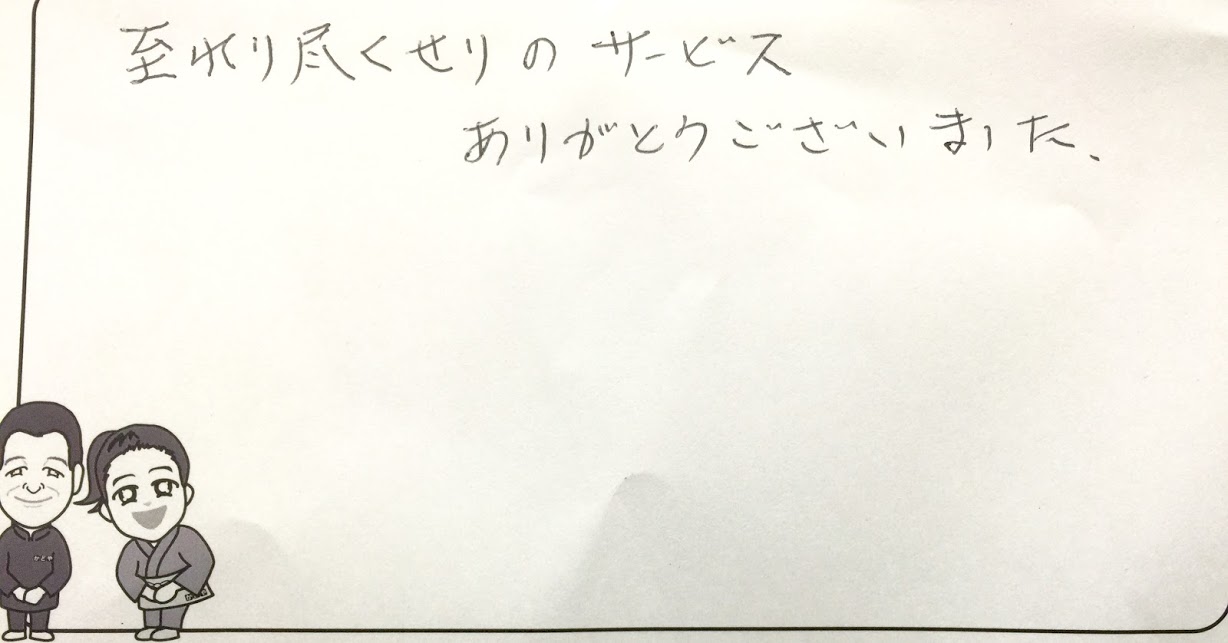 至れり尽くせりのサービス
ありがとうございました、
かどや